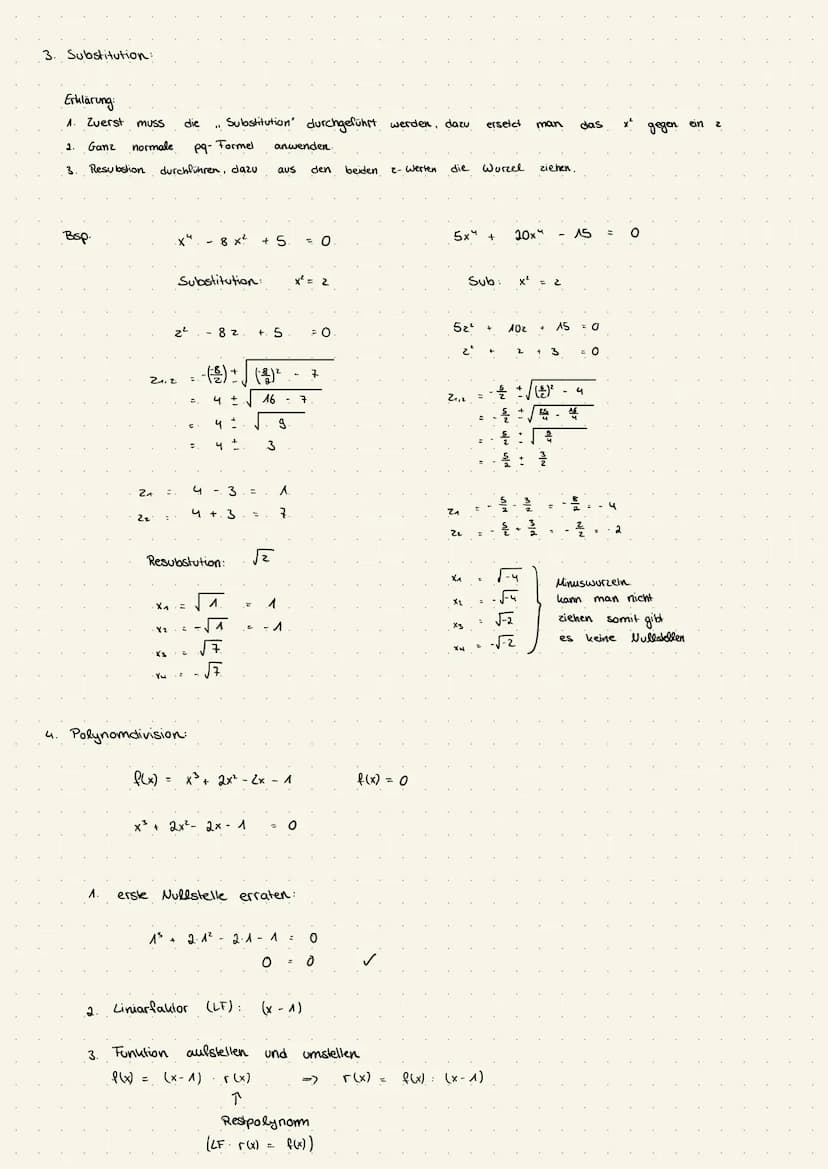 3. Substitution:
Erklärung:
1. Zuerst muss die „Substitution" durchgeführt werden, dazu ersetzt man das x² gegen ein z
2. Ganz normale pq-Formel anwenden
3. Resubstion durchführen, dazu aus den beiden z-Werten die Wurzel ziehen.
Bsp. x⁴ - 8x² + 5 = 0
Substitution: x² = z
z² - 8z + 5 = 0
z₁,₂ = -(-8/2) ± √((-8/2)² - 7)
= 4 ± √(16 - 7)
= 4 ± √9
= 4 ± 3
z₁ = 4 - 3 = 1
z₂ = 4 + 3 = 7
Resubstution: √z
x₁ = √1 = 1
x₂ = -√1 = -1
x₃ = √7
x₄ = -√7
5x⁴ + 20x⁴ - 15 = 0
Sub: x² = z
5z² + 10z + 15 = 0
z² + 2 + 3 = 0
z₁,₂ = -5/2 ± √((5/2)² - 4)
= -5/2 ± √(25/4 - 16/4)
= -5/2 ± √(9/4)
= -5/2 ± 3/2
z₁ = -5/2 - 3/2 = -8/2 = -4
z₂ = -5/2 + 3/2 = -2/2 = -2
x₁ = √-4
x₂ = -√-4
x₃ = √-2
x₄ = -√-2
Minuswurzeln
kann man nicht
ziehen somit gibt
es keine Nullstellen
4. Polynomdivision:
f(x) = x³ + 2x² - 2x - 1 f(x) = 0
x³ + 2x² - 2x - 1 = 0
1. erste Nullstelle erraten:
1³ + 2·1² - 2·1 - 1 = 0
0 = 0 ✓
2. Liniarfaktor (LF): (x - 1)
3. Funktion aufstellen und umstellen
f(x) = (x-1) · r(x) => r(x) = f(x) : (x-1)
↑
Restpolynom
(LF · r(x) = f(x))